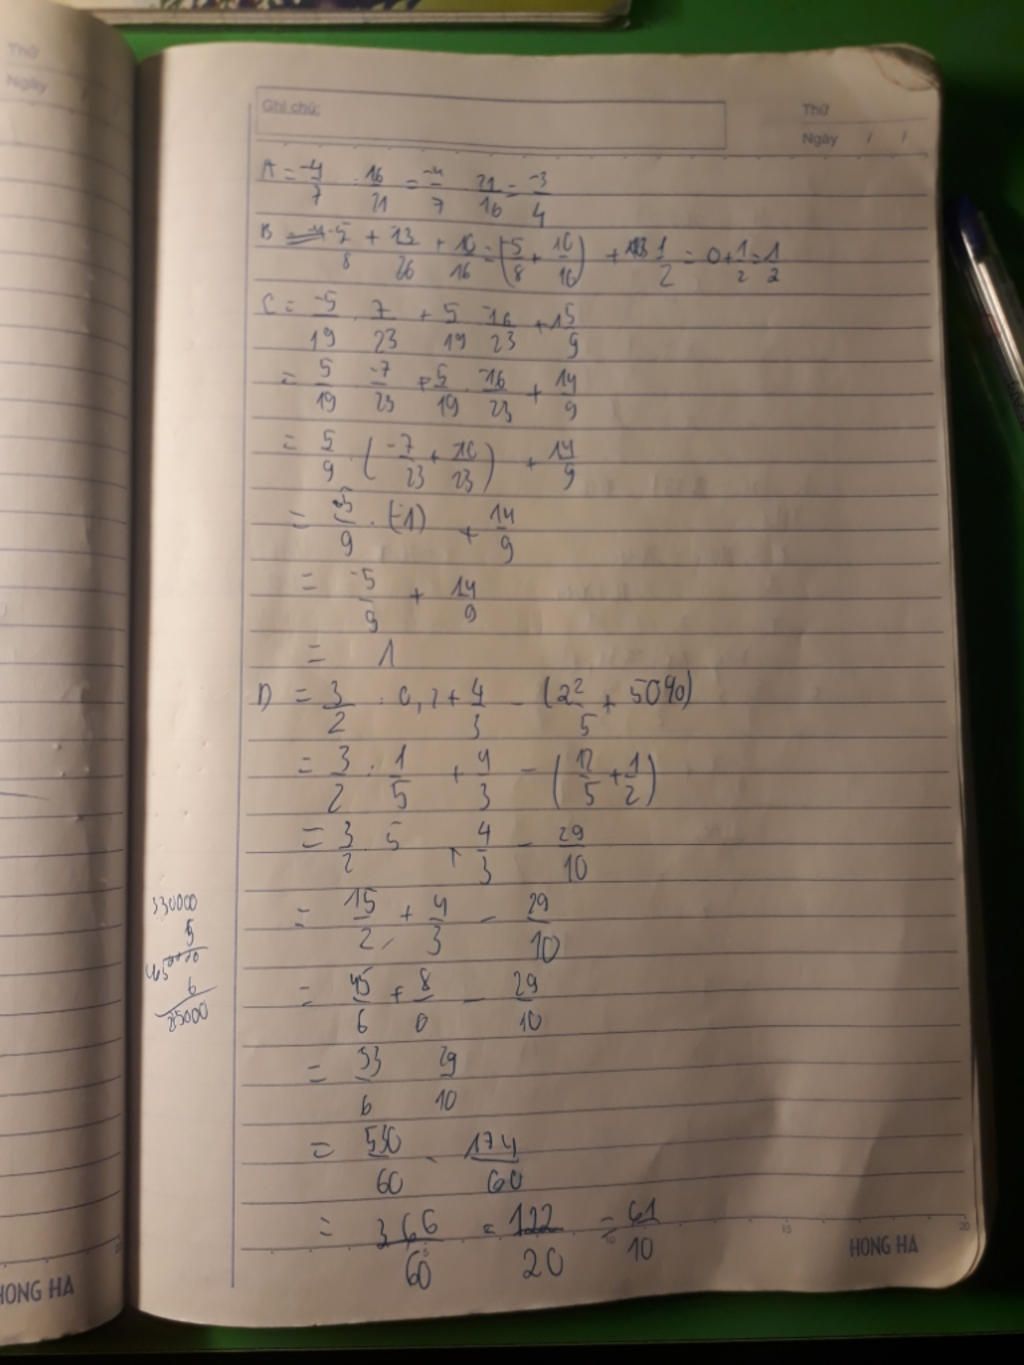 Thứ
Ngày
Ghi chú:
Thứ
Ngày / /
A = -4/7 : 16/21 = -4/7 . 21/16 = -3/4
B = -5/8 + 13/26 + 10/16 = (-5/8 + 10/16) + 1/2 = 0 + 1/2 = 1/2
C = -5/19 . 7/23 + 5/19 . -16/23 + 1 5/9
= 5/19 . -7/23 + 5/19 . -16/23 + 14/9
= 5/9 . (-7/23 + -16/23) + 14/9
= 5/9 . (-1) + 14/9
= -5/9 + 14/9
= 1
D = 3/2 : 0,2 + 4/3 - (2 2/5 + 50%)
= 3/2 : 1/5 + 4/3 - (12/5 + 1/2)
= 3/2 . 5 + 4/3 - 29/10
= 15/2 + 4/3 - 29/10
= 45/6 + 8/6 - 29/10
= 53/6 29/10
= 530/60 - 174/60
= 366/60 = 122/20 = 61/10
330000
5
6
25000
15
20
HONG HA
HONG HA